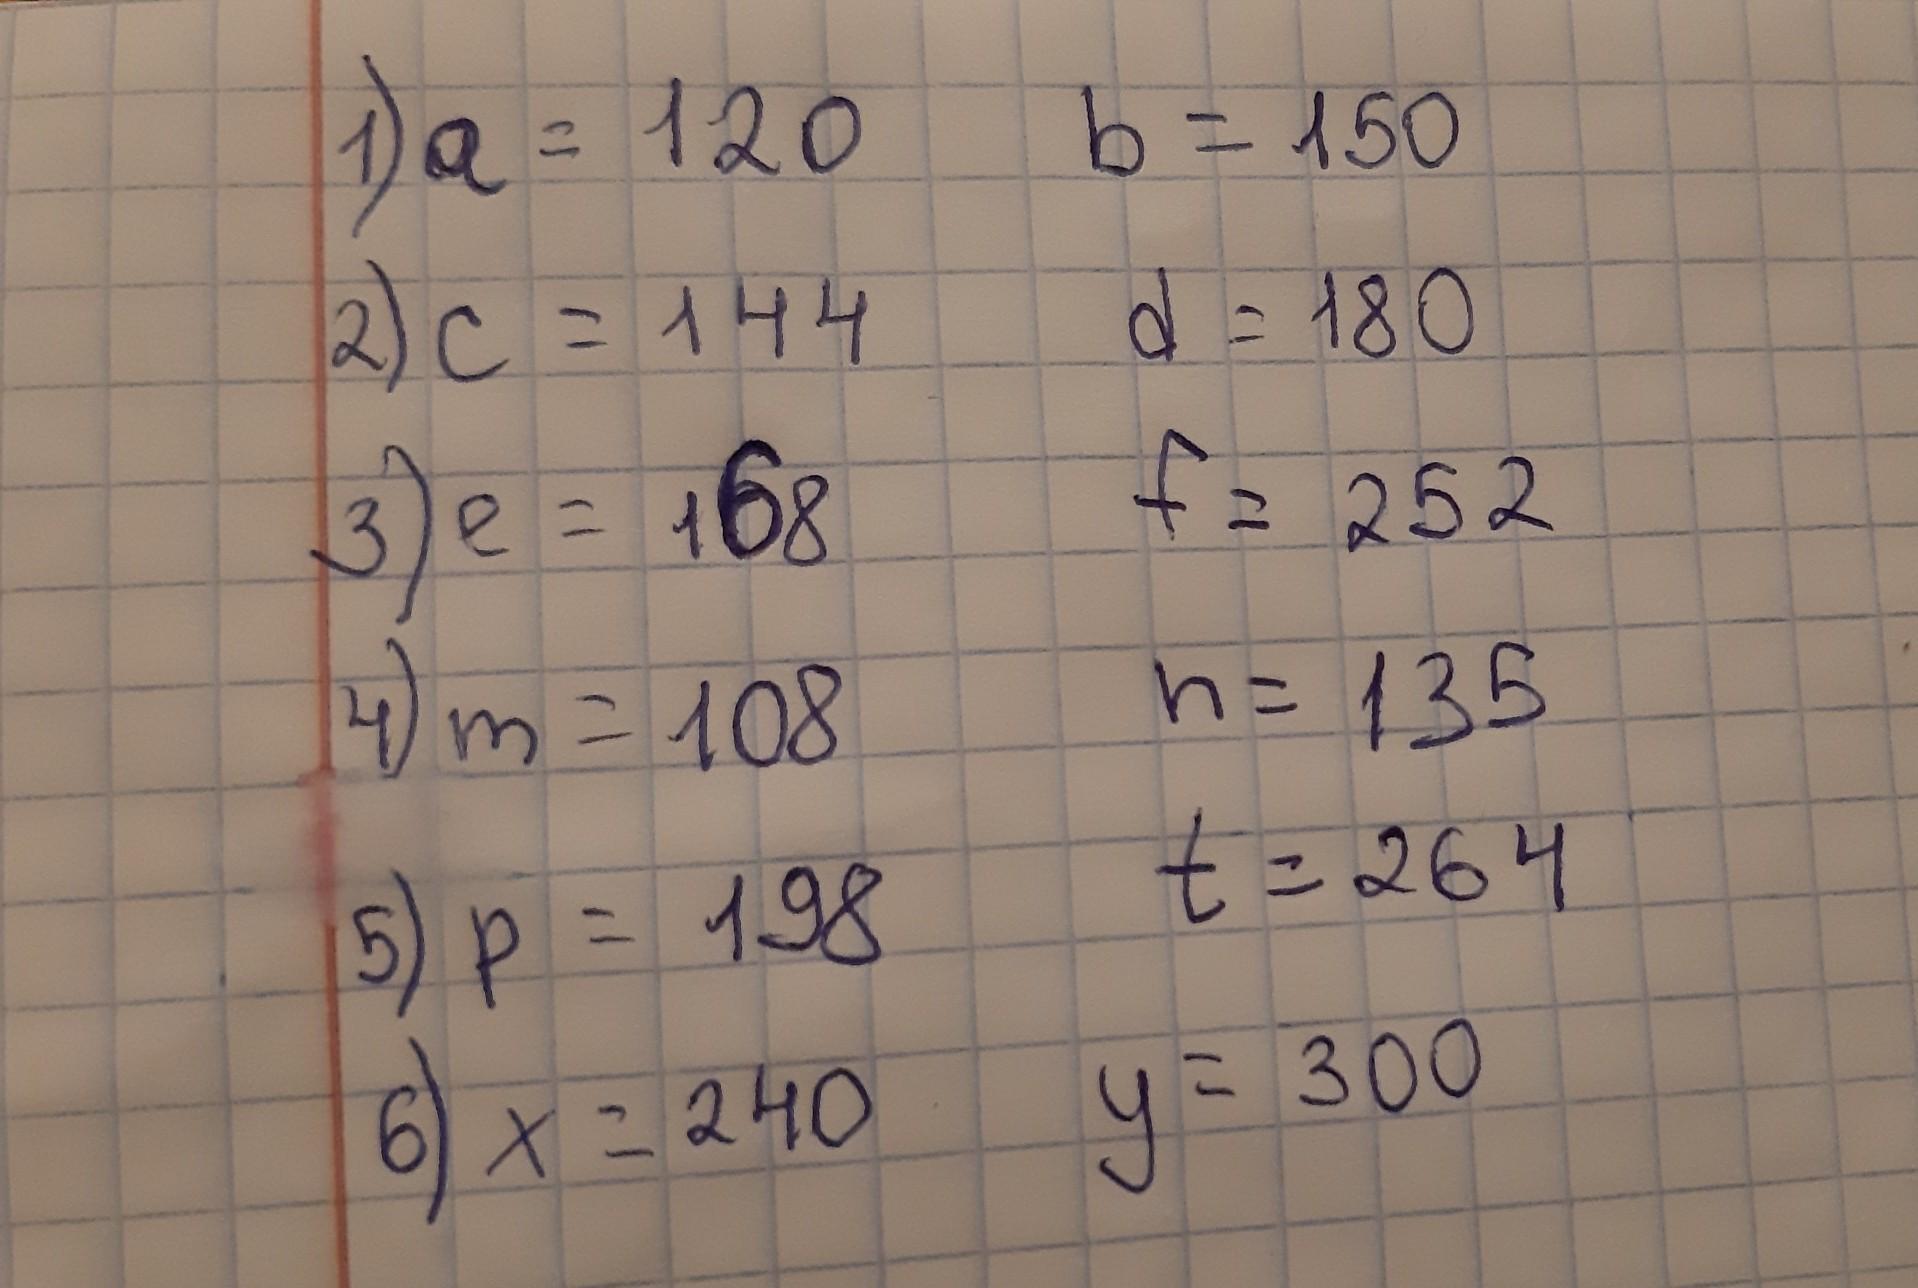 1) a = 120 b = 150
2) c = 144 d = 180
3) e = 168 f = 252
4) m = 108 n = 135
5) p = 198 t = 264
6) x = 240 y = 300